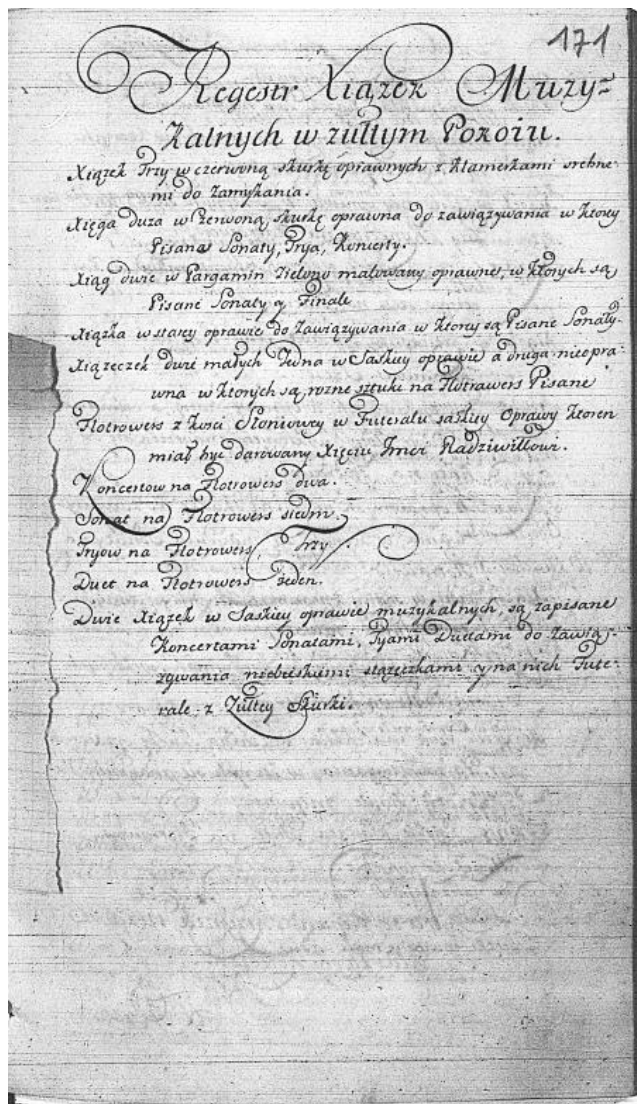 171
Regestr Xiązek Muzy=
kalnych w zułtym Pokoiu.
Xiązek Trzy w czerwoną skurkę oprawnych z klamerkami srebne-
mi do Zamykania.
Xięga duza w Czerwoną skurkę oprawna do zawiązywania w ktorey
Pisane Sonaty, Trya, Koncerty.
Xiąg dwie w Pargamin Zielono malowany oprawne, w ktorych są
Pisane Sonaty y Finale
Xiązka w starey oprawie do Zawiązywania w ktorey są Pisane Sonaty.
Xiązeczek dwie małych Jedna w Saskiey oprawie a druga nieopra-
wna w ktorych są rozne sztuki na Flotrawers Pisane
Flotrowers z kosci Słoniowey w Futeralu saskiey Oprawy ktoren
miał być darowany Xięciu Imci Radziwiłłowi.
Koncertow na Flotrowers dwa.
Sonat na Flotrowers siedm.
Tryow na Flotrowers Trzy.
Duet na Flotrowers ieden.
Dwie Xiązek w Saskiey oprawie muzykalnych, są zapisane
Koncertami Sonatami, Tryami Duetami do Zawią-
zywania niebieskiemi stązeczkami y na nich Fute-
rale z Zułtey Skurki.